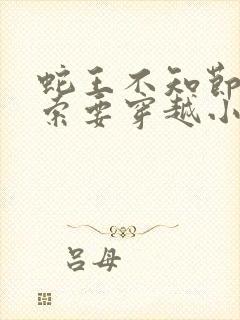 蛇王不知节
索要穿越小
吕母